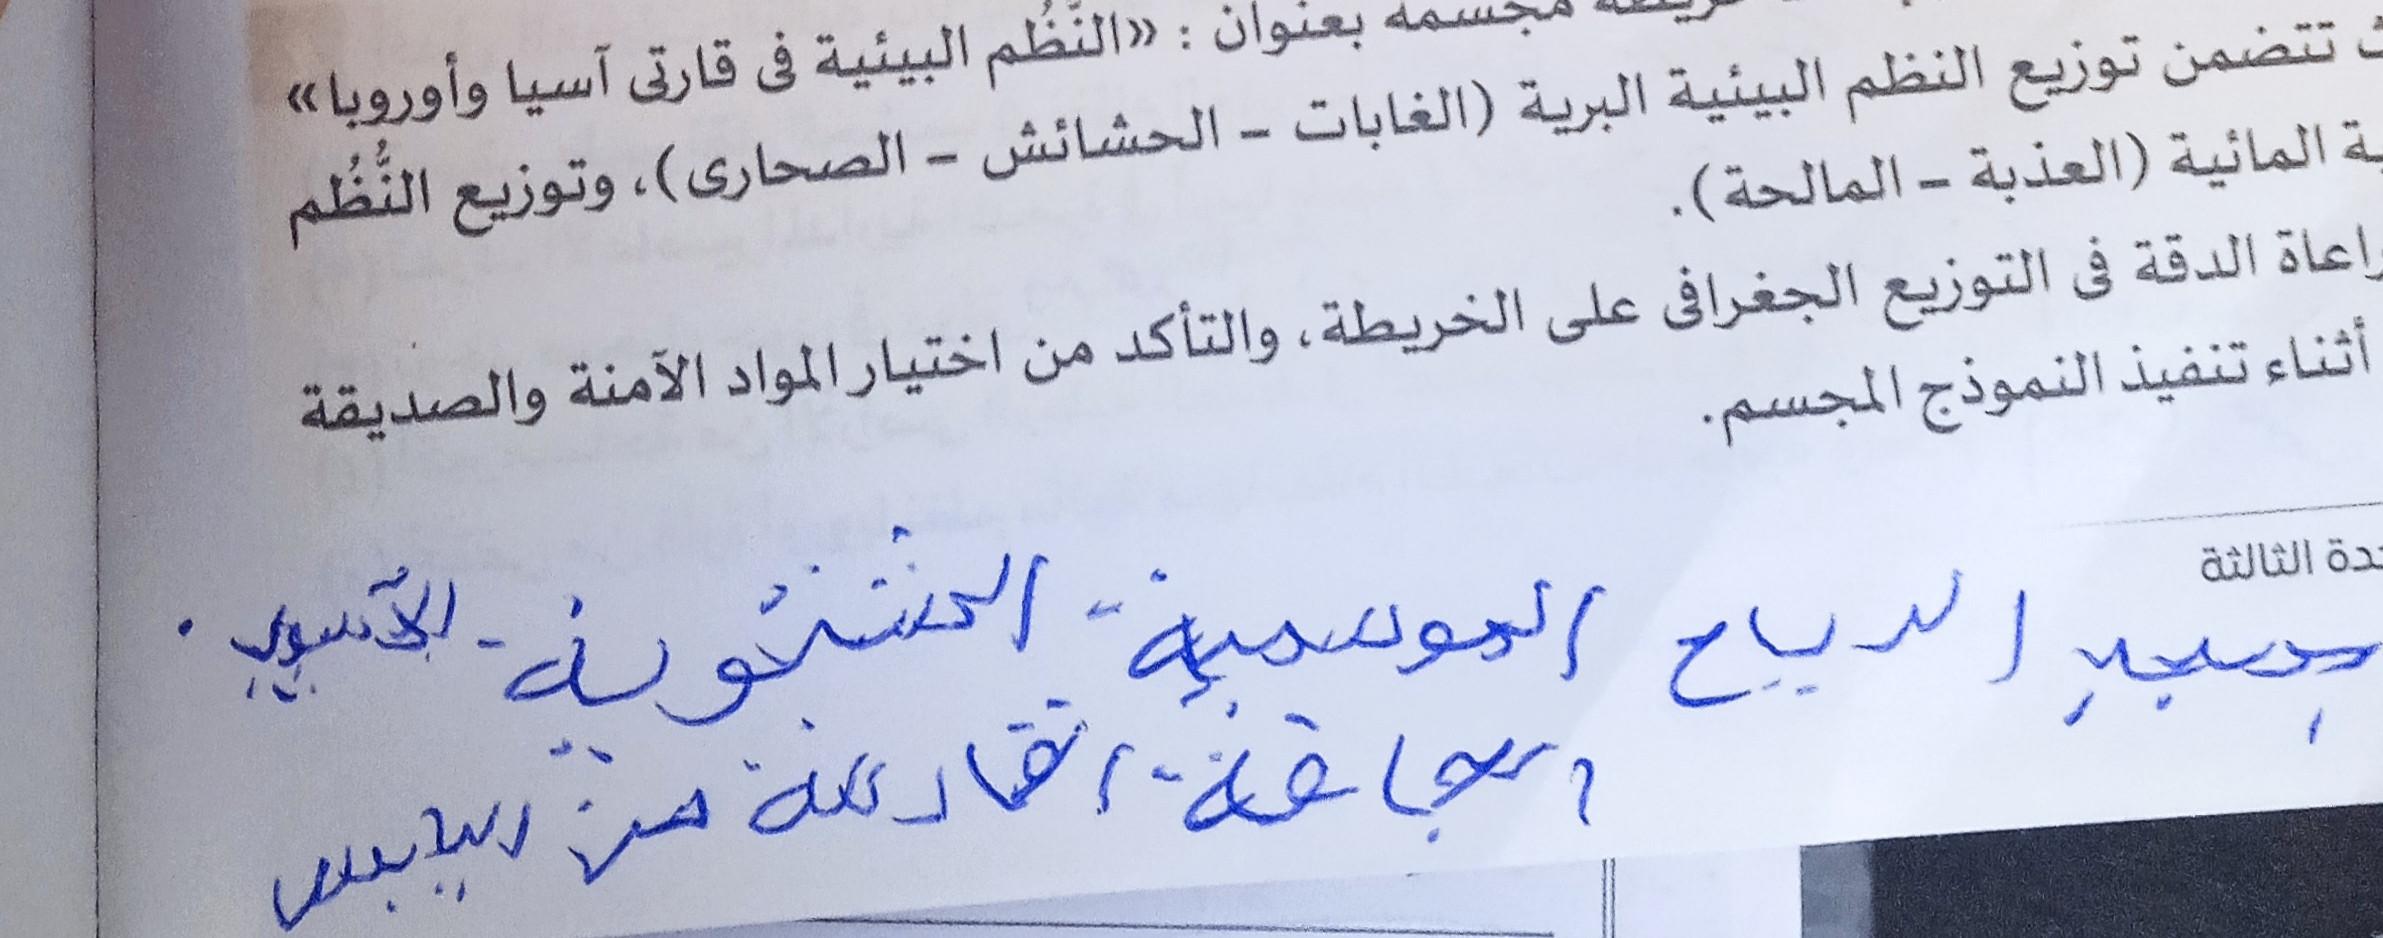 مجسمة بعنوان : «النُّظُم البيئية فى قارتى آسيا وأوروبا»
تتضمن توزيع النظم البيئية البرية (الغابات – الحشائش – الصحارى)، وتوزيع النُّظُم
المائية (العذبة – المالحة).
الدقة فى التوزيع الجغرافى على الخريطة، والتأكد من اختيار المواد الآمنة والصديقة
أثناء تنفيذ النموذج المجسم.
الثالثة
بسبب الرياح الموسمية الشتوية
الجافة القادمة من اليابس الآسيوى.